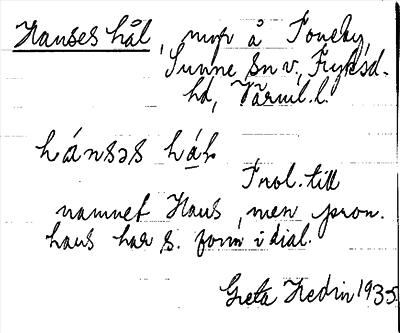 Hanses hål, myr å Toneby,
Sunne sn v, Fryksd.
hd, Värml. l.
hánsəs hál.
Trol. till
namnet Hans, men pron.
hans har s. form i dial.
Greta Hedin 1935